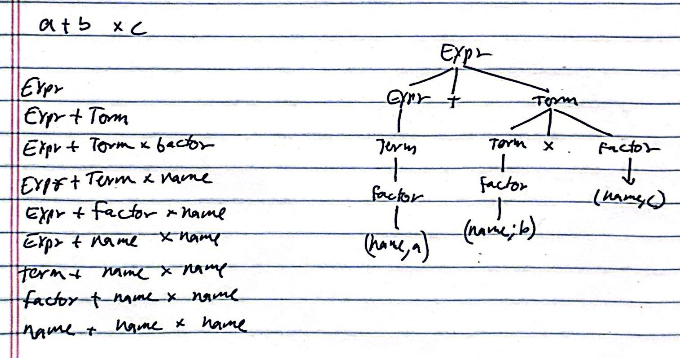 a + b × c
Expr
Expr + Term
Expr + Term × factor
Expr + Term × name
Expr + factor × name
Expr + name × name
term + name × name
factor + name × name
name + name × name
Expr
Expr + Term
Term Term × Factor
Factor Factor (name,c)
(name,a) (name,b)